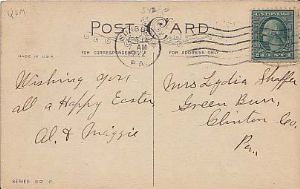 POST CARD
FOR CORRESPONDENCE
FOR ADDRESS ONLY
AM
PA.
MADE IN U.S.A.
Wishing you
all a Happy Easter
Al. & Maggie
Mrs Lydia Shaffer
Green Burr,
Clinton Co,
Pa.,